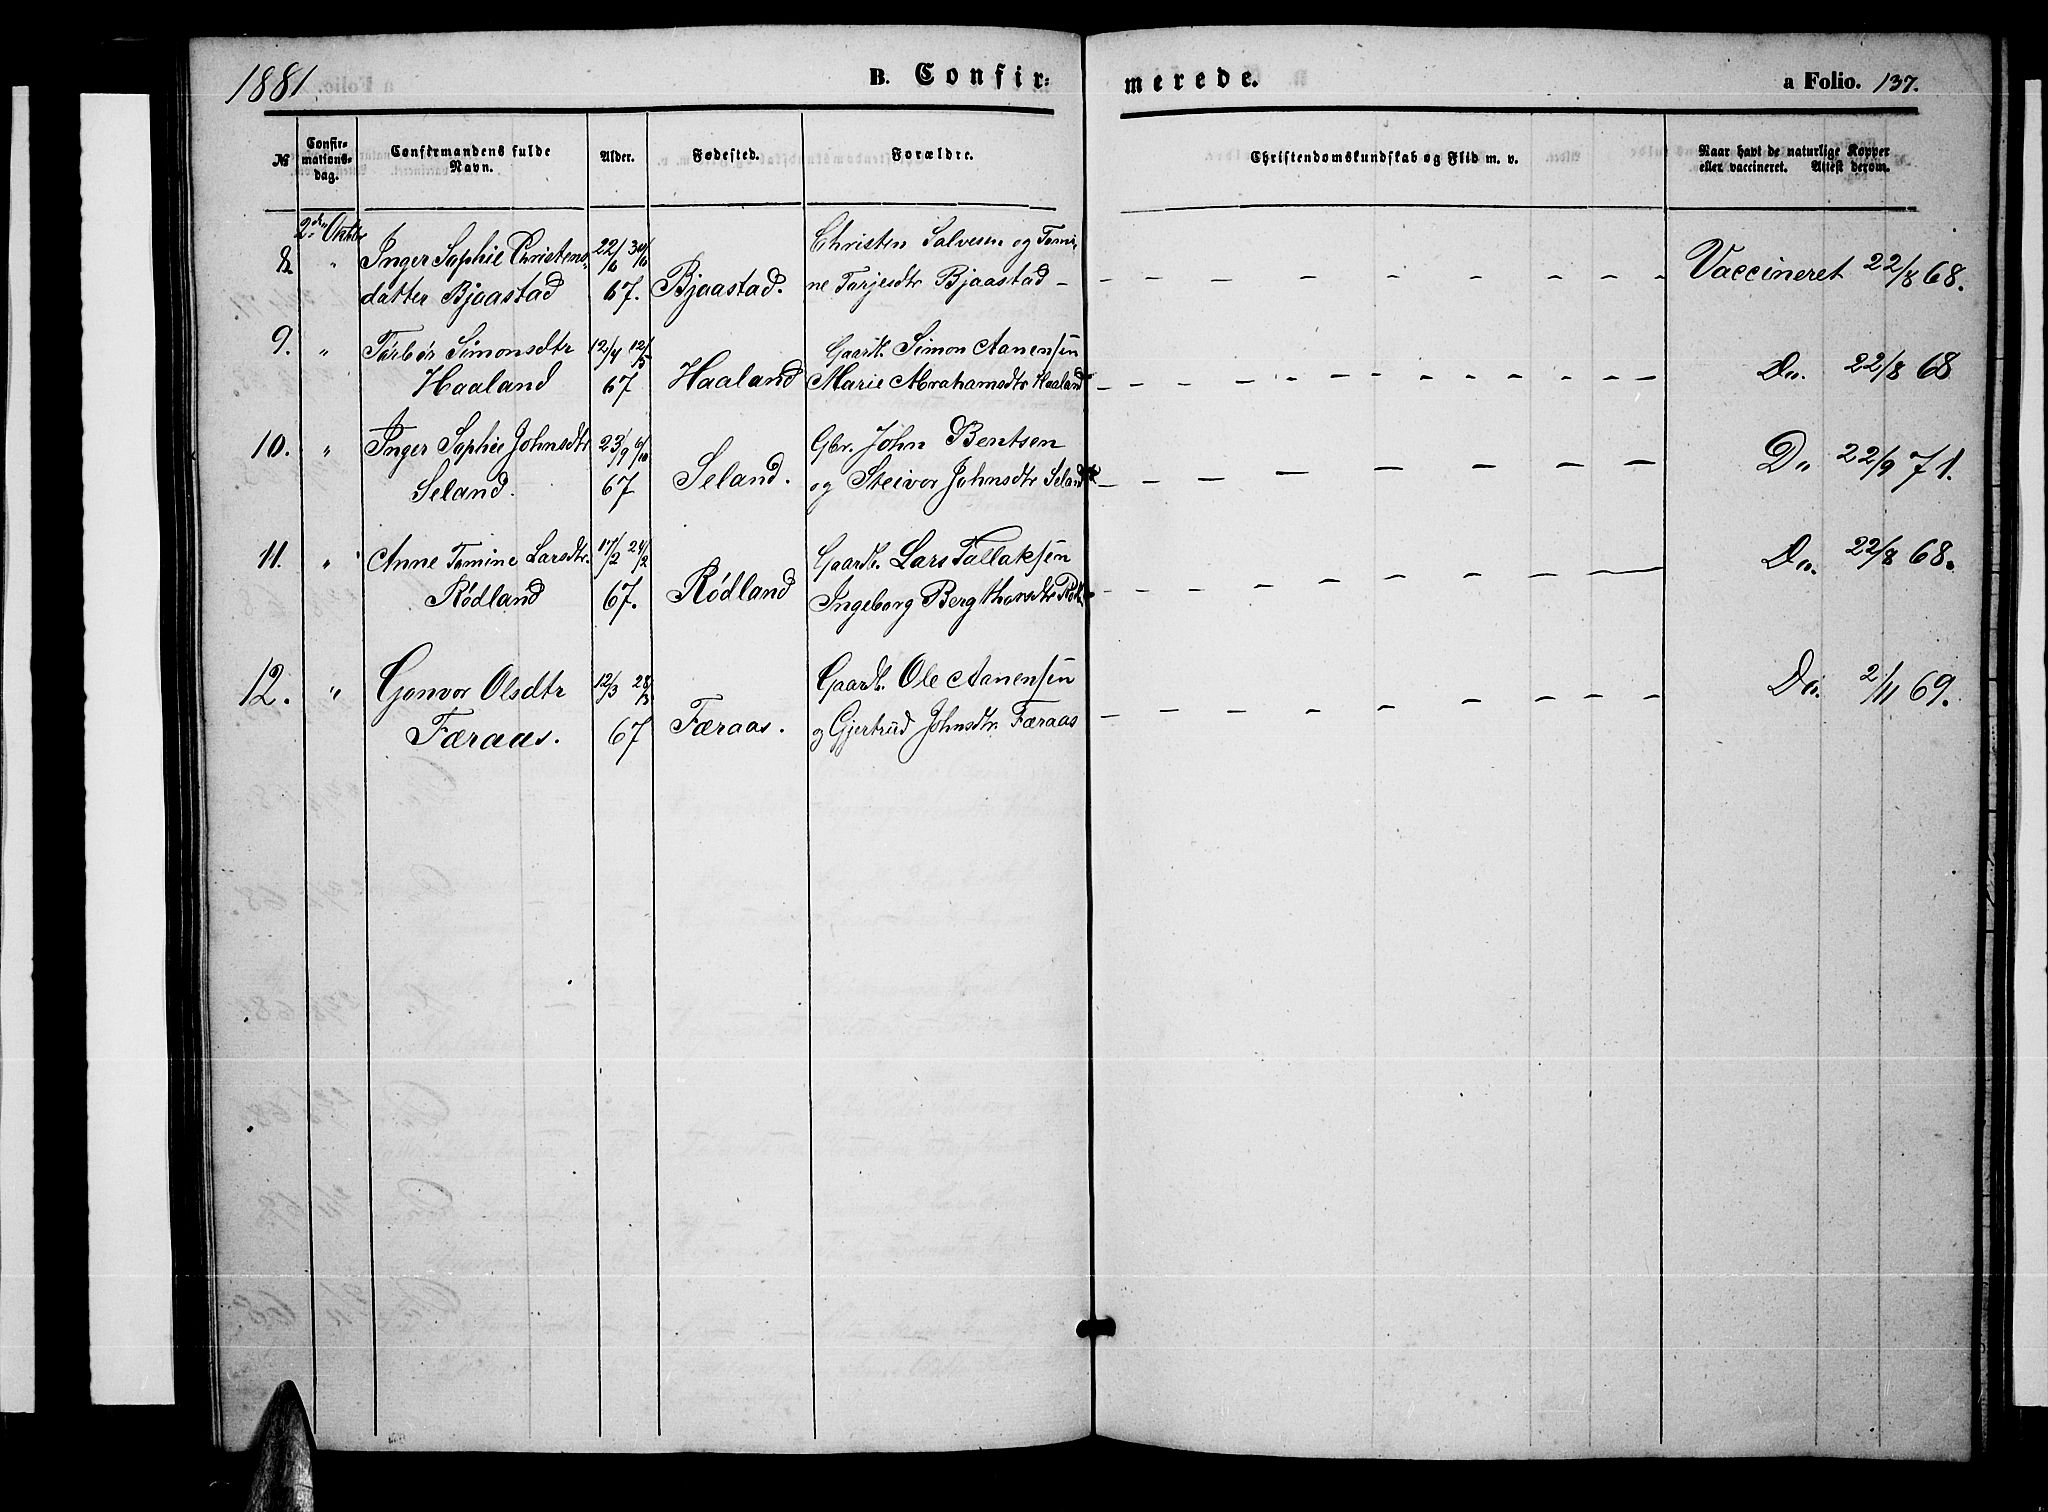 1881
B. Confir:
merede.
a Folio. 137.
№
Confir-
mations-
dag.
Confirmandens fulde
Navn.
Alder.
Fødested.
Forældre.
Christendomskundskab og Flid m. v.
Naar havt de naturlige Kopper
eller vaccineret. Attest derom.
2den Oktober
8 " Inger Sophie Christens- 22/6 30/6 Christen Salvesen og Tomi-
datter Bjaastad 67. Bjaastad. ne Tarjesdtr Bjaastad – Vaccineret 22/8 68.
9. " Torbør Simonsdtr 12/4 12/5 Gaardb. Simon Aanensen
Haaland 67 Haaland Marie Abrahamsdtr Haaland Do. 22/8 68
10. " Inger Sophie Johnsdtr 23/9 6/10 Gbr. John Bentsen
Seland. 67 Seland. og Steivor Johnsdtr Seland Do 22/9 71.
11. " Anne Tomine Larsdtr. 17/2 24/2 Gaardb. Lars Tallaksen
Rødland 67. Rødland Ingeborg Bergthorsdtr Do. 22/8 68.
12. " Gonvor Olsdtr 12/3 28/3 Gaardb. Ole Aanensen
Færaas. 67 Færaas. og Gjertrud Johnsdtr. Færaas Do. 2/11 69.